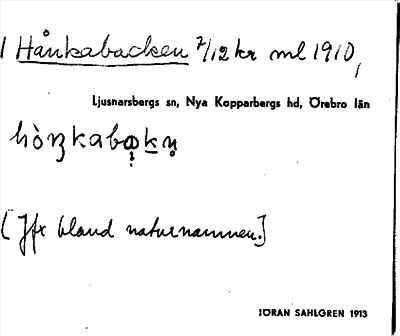 / Hånkabacken 7/12 kr ml 1910,
Ljusnarsbergs sn, Nya Kopparbergs hd, Örebro län
[Jfr bland naturnamnen.]
JÖRAN SAHLGREN 1913